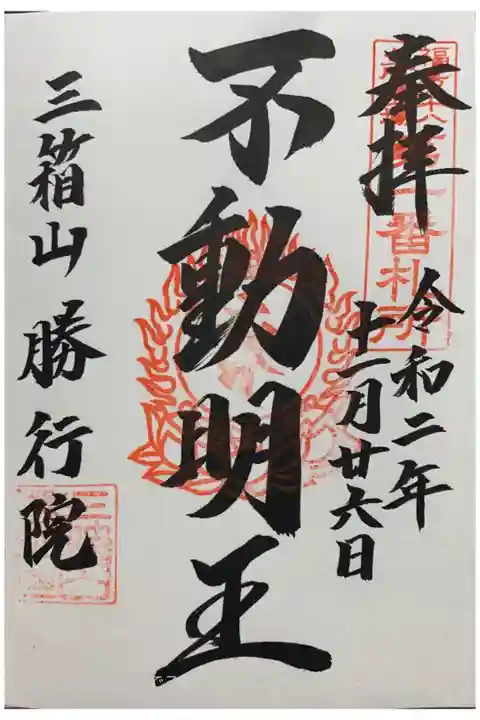 奉拝
令和二年
十一月廿六日
不動明王
三箱山勝行院
番札所